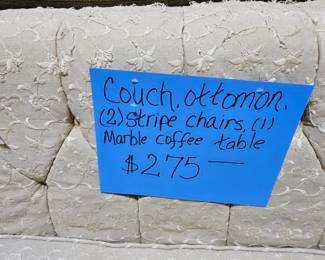 Couch, ottomon,
(2) stripe chairs, (1)
Marble coffee table
$275—